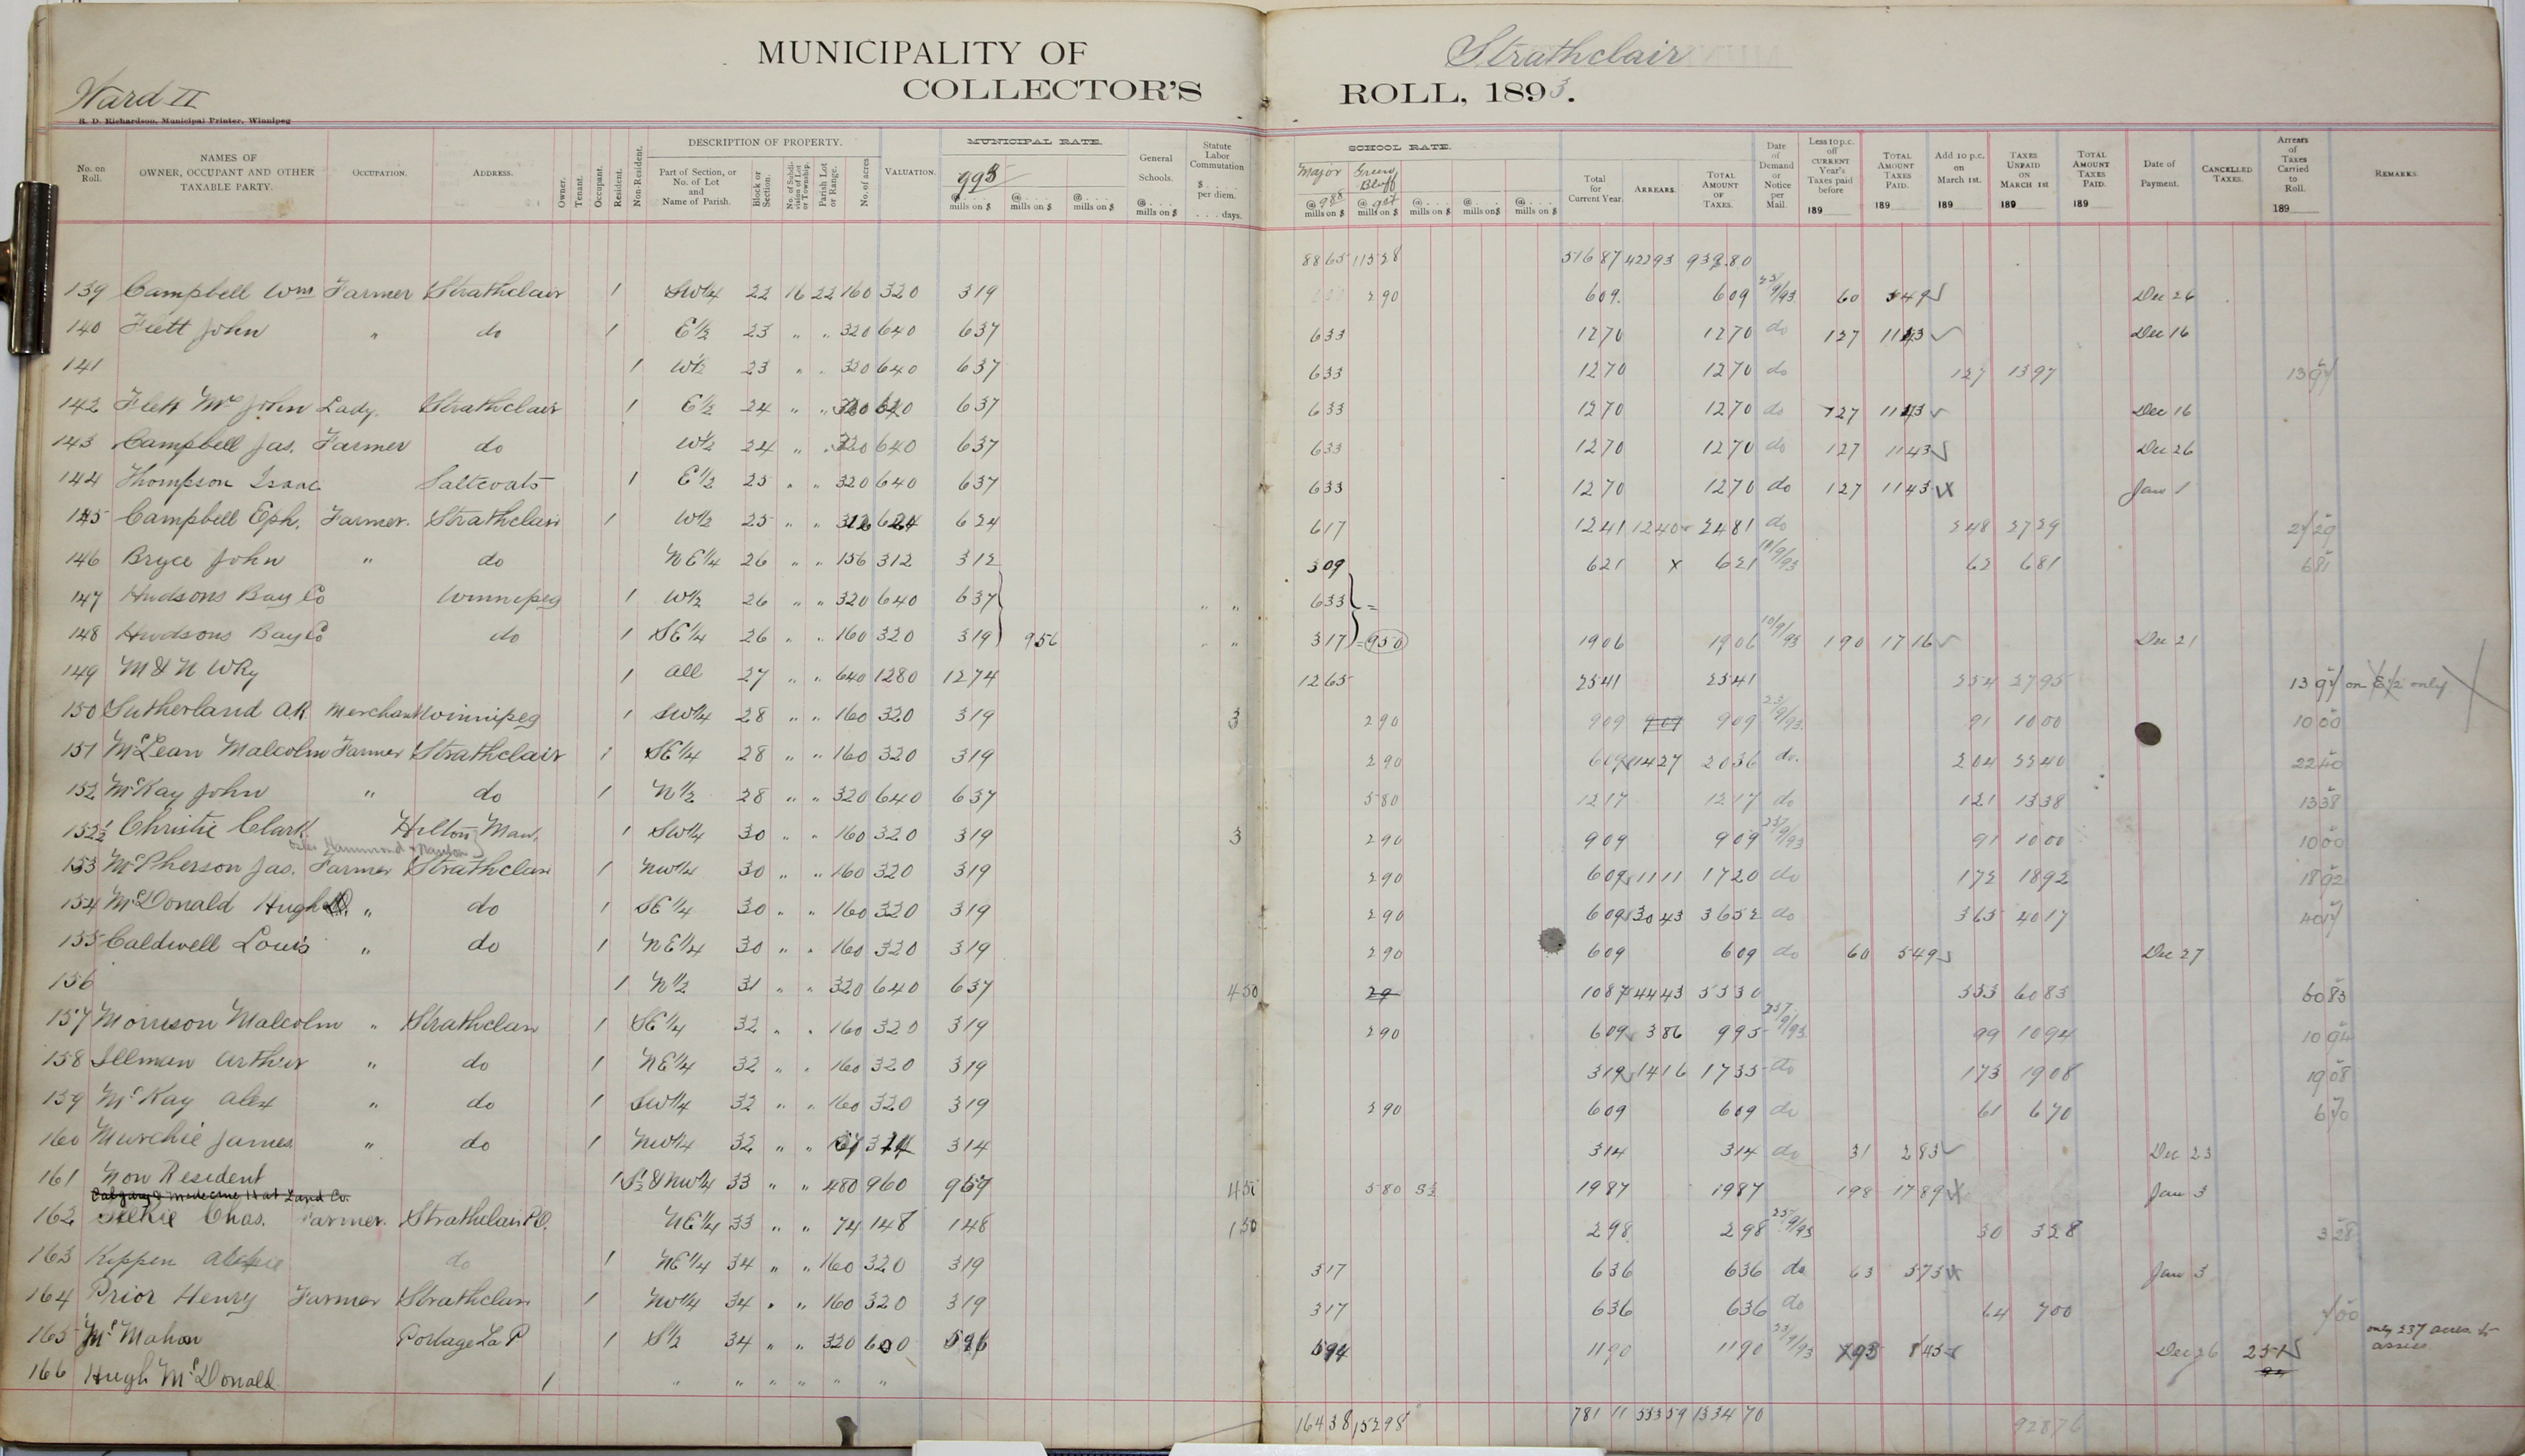 MUNICIPALITY OF Strathclair
Ward II COLLECTOR'S ROLL, 1893.
R. D. Richardson, Municipal Printer, Winnipeg
No. on Roll. NAMES OF OWNER, OCCUPANT AND OTHER TAXABLE PARTY. OCCUPATION. ADDRESS. Owner. Tenant. Occupant. Resident. Non-Resident. DESCRIPTION OF PROPERTY. Part of Section, or No. of Lot and Name of Parish. Block or Section. No. of Subdivision of Lot or Township. Parish Lot or Range. No. of acres VALUATION. MUNICIPAL RATE. 993 @ mills on $ @ mills on $ @ mills on $ General Schools. @ mills on $ Statute Labor Commutation $ per diem. days. SCHOOL RATE. Major @ 988 mills on $ Green Bluff @ 907 mills on $ @ mills on $ @ mills on $ @ mills on $ Total for Current Year. ARREARS. TOTAL AMOUNT OF TAXES. Date of Demand or Notice per Mail. Less 10 p.c. off CURRENT Year's Taxes paid before 189 TOTAL AMOUNT TAXES PAID. 189 Add 10 p.c. on March 1st. 189 TAXES UNPAID ON MARCH 1st 189 TOTAL AMOUNT TAXES PAID. 189 Date of Payment. CANCELLED TAXES. Arrears of Taxes Carried to Roll. 189 REMARKS.
8865 11528 51687 42293 93980
139 Campbell Wm Farmer Strathclair 1 SW1/4 22 16 22 160 320 319 290 609 609 25/9/93 60 549 Dec 26
140 Flett John " do 1 E1/2 23 " " 320 640 637 633 1270 1270 do 127 1143 Dec 16
141 1 W1/2 23 " " 320 640 637 633 1270 1270 do 127 1397 1397
142 Flett Mrs John Lady Strathclair 1 E1/2 24 " " 320 640 637 633 1270 1270 do 127 1143 Dec 16
143 Campbell Jas. Farmer do W1/2 24 " " 320 640 637 633 1270 1270 do 127 1143 Dec 26
144 Thompson Isaac Saltcoats 1 E1/2 25 " " 320 640 637 633 1270 1270 do 127 1143 Jan 1
145 Campbell Eph. Farmer Strathclair 1 W1/2 25 " " 312 624 624 617 1241 1240 2481 do 248 2729 2729
146 Bryce John " do NE1/4 26 " " 156 312 312 309 621 x 621 18/9/93 62 681 681
147 Hudsons Bay Co Winnipeg 1 W1/2 26 " " 320 640 637 " " 633 =
148 Hudsons Bay Co do 1 SE1/4 26 " " 160 320 319 956 " " 317 = 950 1906 1906 10/9/93 190 1716 Dec 21
149 M & N W Ry 1 all 27 " " 640 1280 1274 1265 2541 2541 254 2795 1397 on E1/2 only
150 Sutherland A R Merchant Winnipeg 1 SW1/4 28 " " 160 320 319 3 290 909 909 909 25/9/93 91 1000 1000
151 McLean Malcolm Farmer Strathclair 1 SE1/4 28 " " 160 320 319 290 609 1427 2036 do. 204 2240 2240
152 McKay John " do 1 N1/2 28 " " 320 640 637 580 1217 1217 do 121 1338 1338
152 1/2 Christie Clark Hilton Man. 1 SW1/4 30 " " 160 320 319 3 290 909 909 25/9/93 91 1000 1000
Osler Hammond & Nanton
153 McPherson Jas. Farmer Strathclair 1 NW1/4 30 " " 160 320 319 290 609 1111 1720 do 172 1892 1892
154 McDonald Hugh " do 1 SE1/4 30 " " 160 320 319 290 609 3043 3652 do 365 4017 4017
155 Caldwell Louis " do 1 NE1/4 30 " " 160 320 319 290 609 609 do 60 549 Dec 27
156 1 N1/2 31 " " 320 640 637 450 29 1087 4443 5530 553 6083 6083
157 Morrison Malcolm " Strathclair 1 SE1/4 32 " " 160 320 319 290 609 386 995 25/9/93 99 1094 1094
158 Illman Arthur " do 1 NE1/4 32 " " 160 320 319 319 1416 1735 do 173 1908 1908
159 McKay Alex " do 1 SW1/4 32 " " 160 320 319 290 609 609 do 61 670 670
160 Murchie James " do 1 NW1/4 32 " " 314 314 314 do 31 283 Dec 23
161 Non Resident 1 S1/2 & NW1/4 33 " " 480 960 957 450 580 1987 1987 198 1789 Jan 3
Calgary & Medecine Hat Land Co.
162 Chas. Farmer Strathclair P.O. NE1/4 33 " " 74 148 148 150 298 298 25/9/93 30 328 328
163 Kippen do 1 NE1/4 34 " " 160 320 319 317 636 636 do 63 573 Jan 3
164 Prior Henry Farmer Strathclair 1 NW1/4 34 " " 160 320 319 317 636 636 do 64 700 700
165 McMahon Portage La P 1 S1/2 34 " " 320 600 596 594 1190 1190 25/9/93 845 Dec 26 251 only 237 acres to assess
166 Hugh McDonald 1 " " " " " "
16438 15298 78111 53359 133470 92876